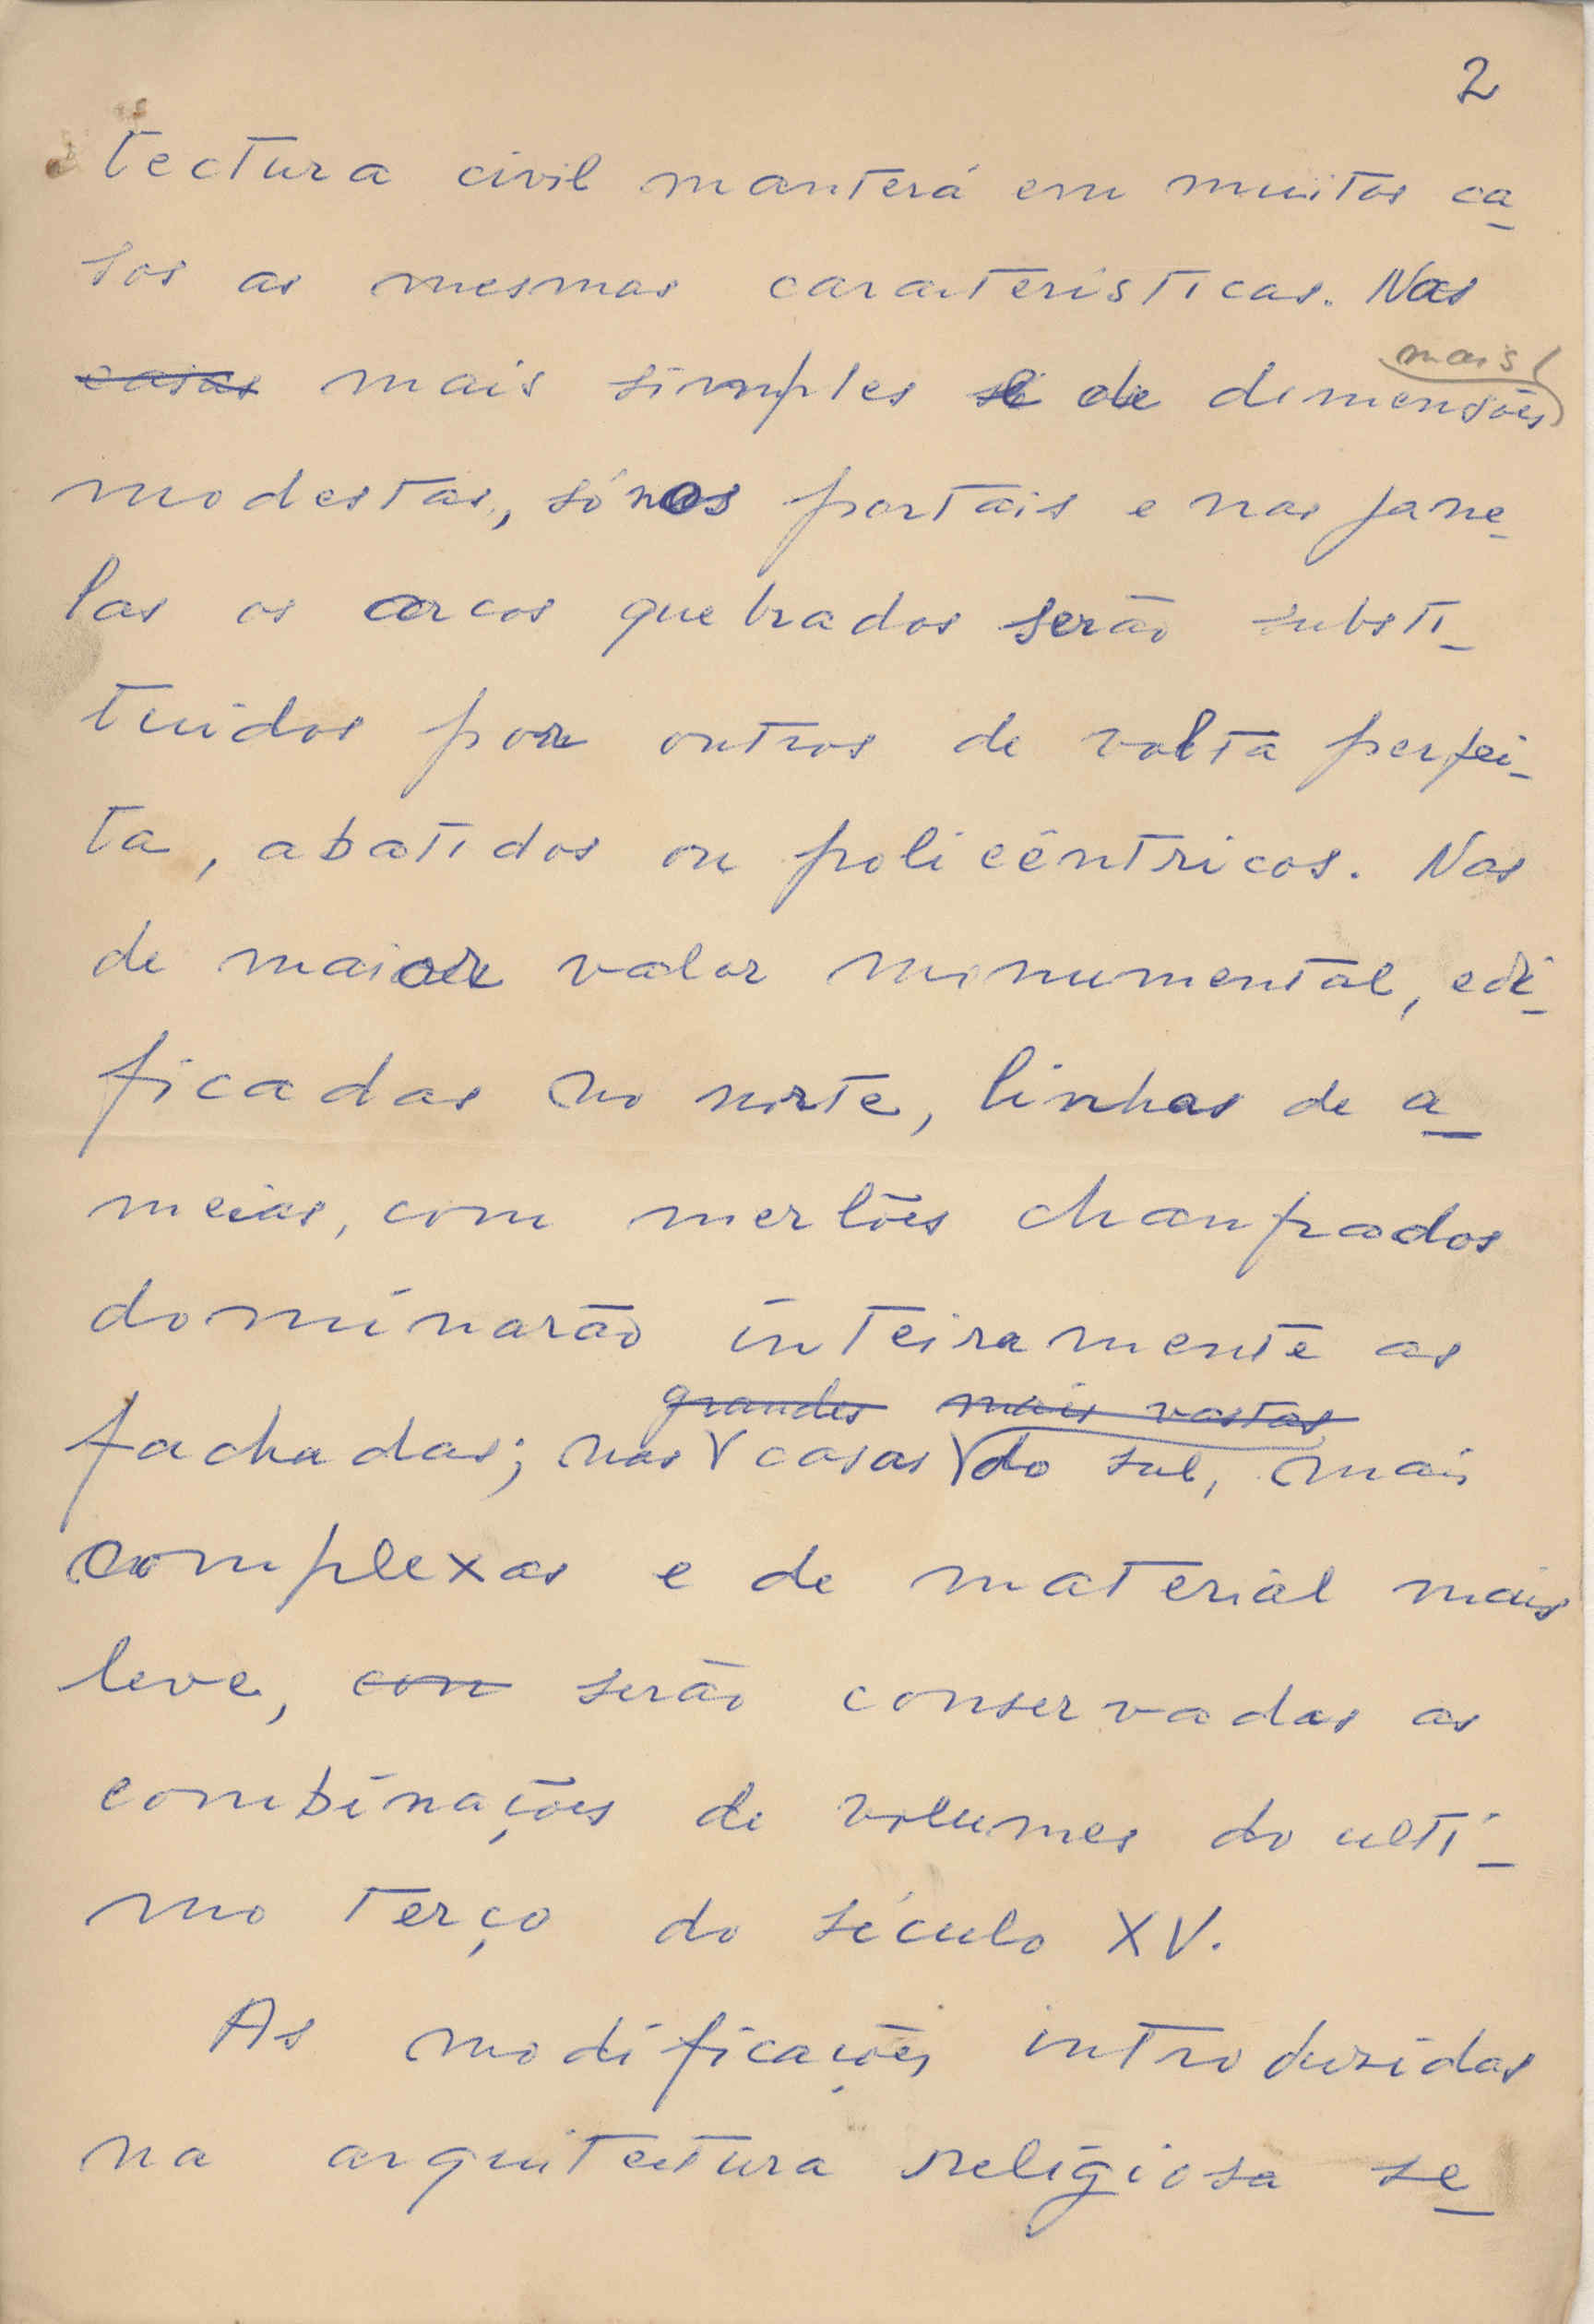 2
tectura civil manterá em muitos ca-
sos as mesmas caracterísTicas. Nas
casas mais simples e de dimensões mais
modestas, só nos portais e nas jane-
las os arcos quebrados serão substi-
tuidos por outros de volta perfei-
ta, abatidos ou policêntricos. Nas
de maior valor monumental, edi-
ficadas no norte, linhas de a-
meias, com merlões chanfrados
dominarão inteiramente as
grandes mais vastas
fachadas; nas casas do sul, mais
complexas e de material mais
leve, com serão conservadas as
combinações de volumes do ulti-
mo terço do século XV.
As modificações introduzidas
na arquitectura religiosa se-